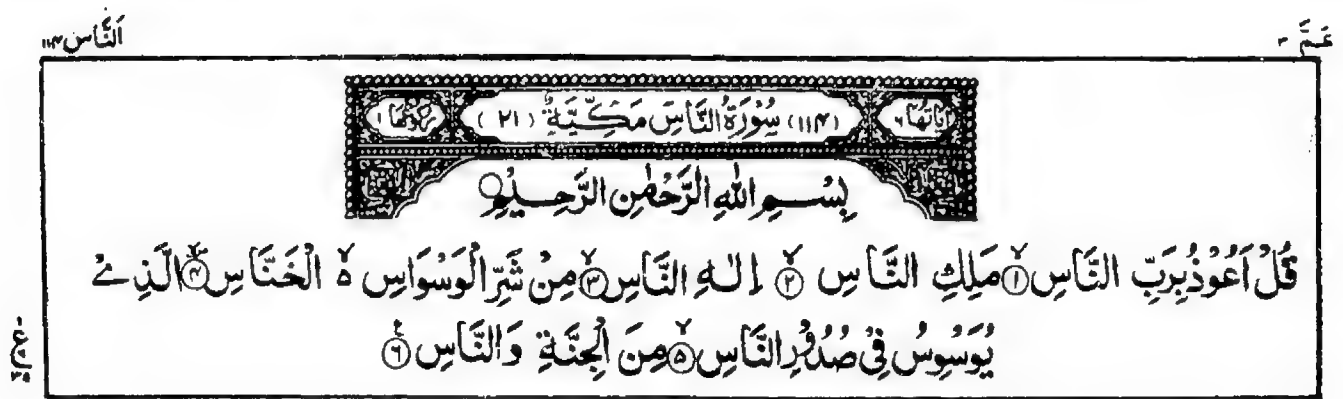 عَمَّ ۳۰ اَلنَّاس ۱۱۴
اٰيَاتُهَا ۶ (۱۱۴) سُوْرَةُ النَّاسِ مَكِّيَّةٌ (۲۱) رُكُوْعُهَا ۱
بِسْـــمِ اللّٰهِ الرَّحْمٰنِ الرَّحِـــيْمِ ۝
قُلْ اَعُوْذُ بِرَبِّ النَّاسِ ۝۱ مَلِكِ النَّاسِ ۝۲ اِلٰـهِ النَّاسِ ۝۳ مِنْ شَرِّ الْوَسْوَاسِ ۵ الْخَنَّاسِ ۝۴ الَّذِيْ
يُوَسْوِسُ فِيْ صُدُوْرِ النَّاسِ ۝۵ مِنَ الْجِنَّةِ وَالنَّاسِ ۝۶